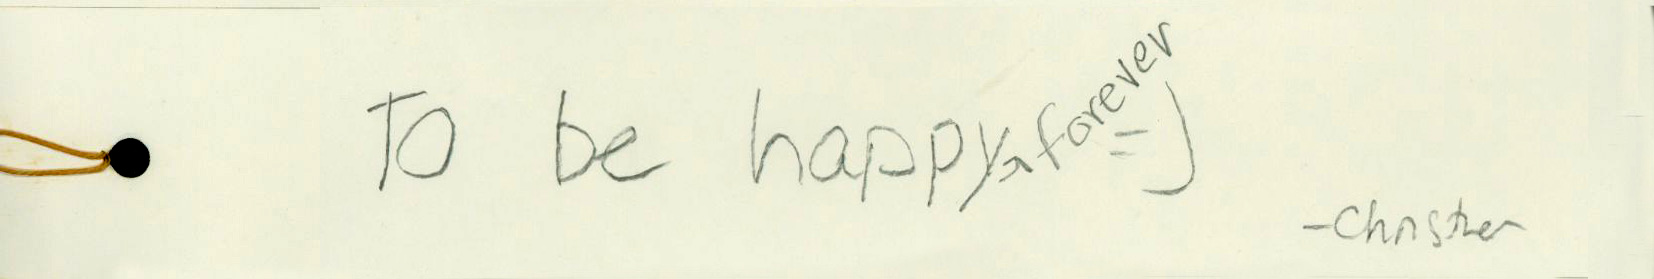 To be happy forever =)
-Christian